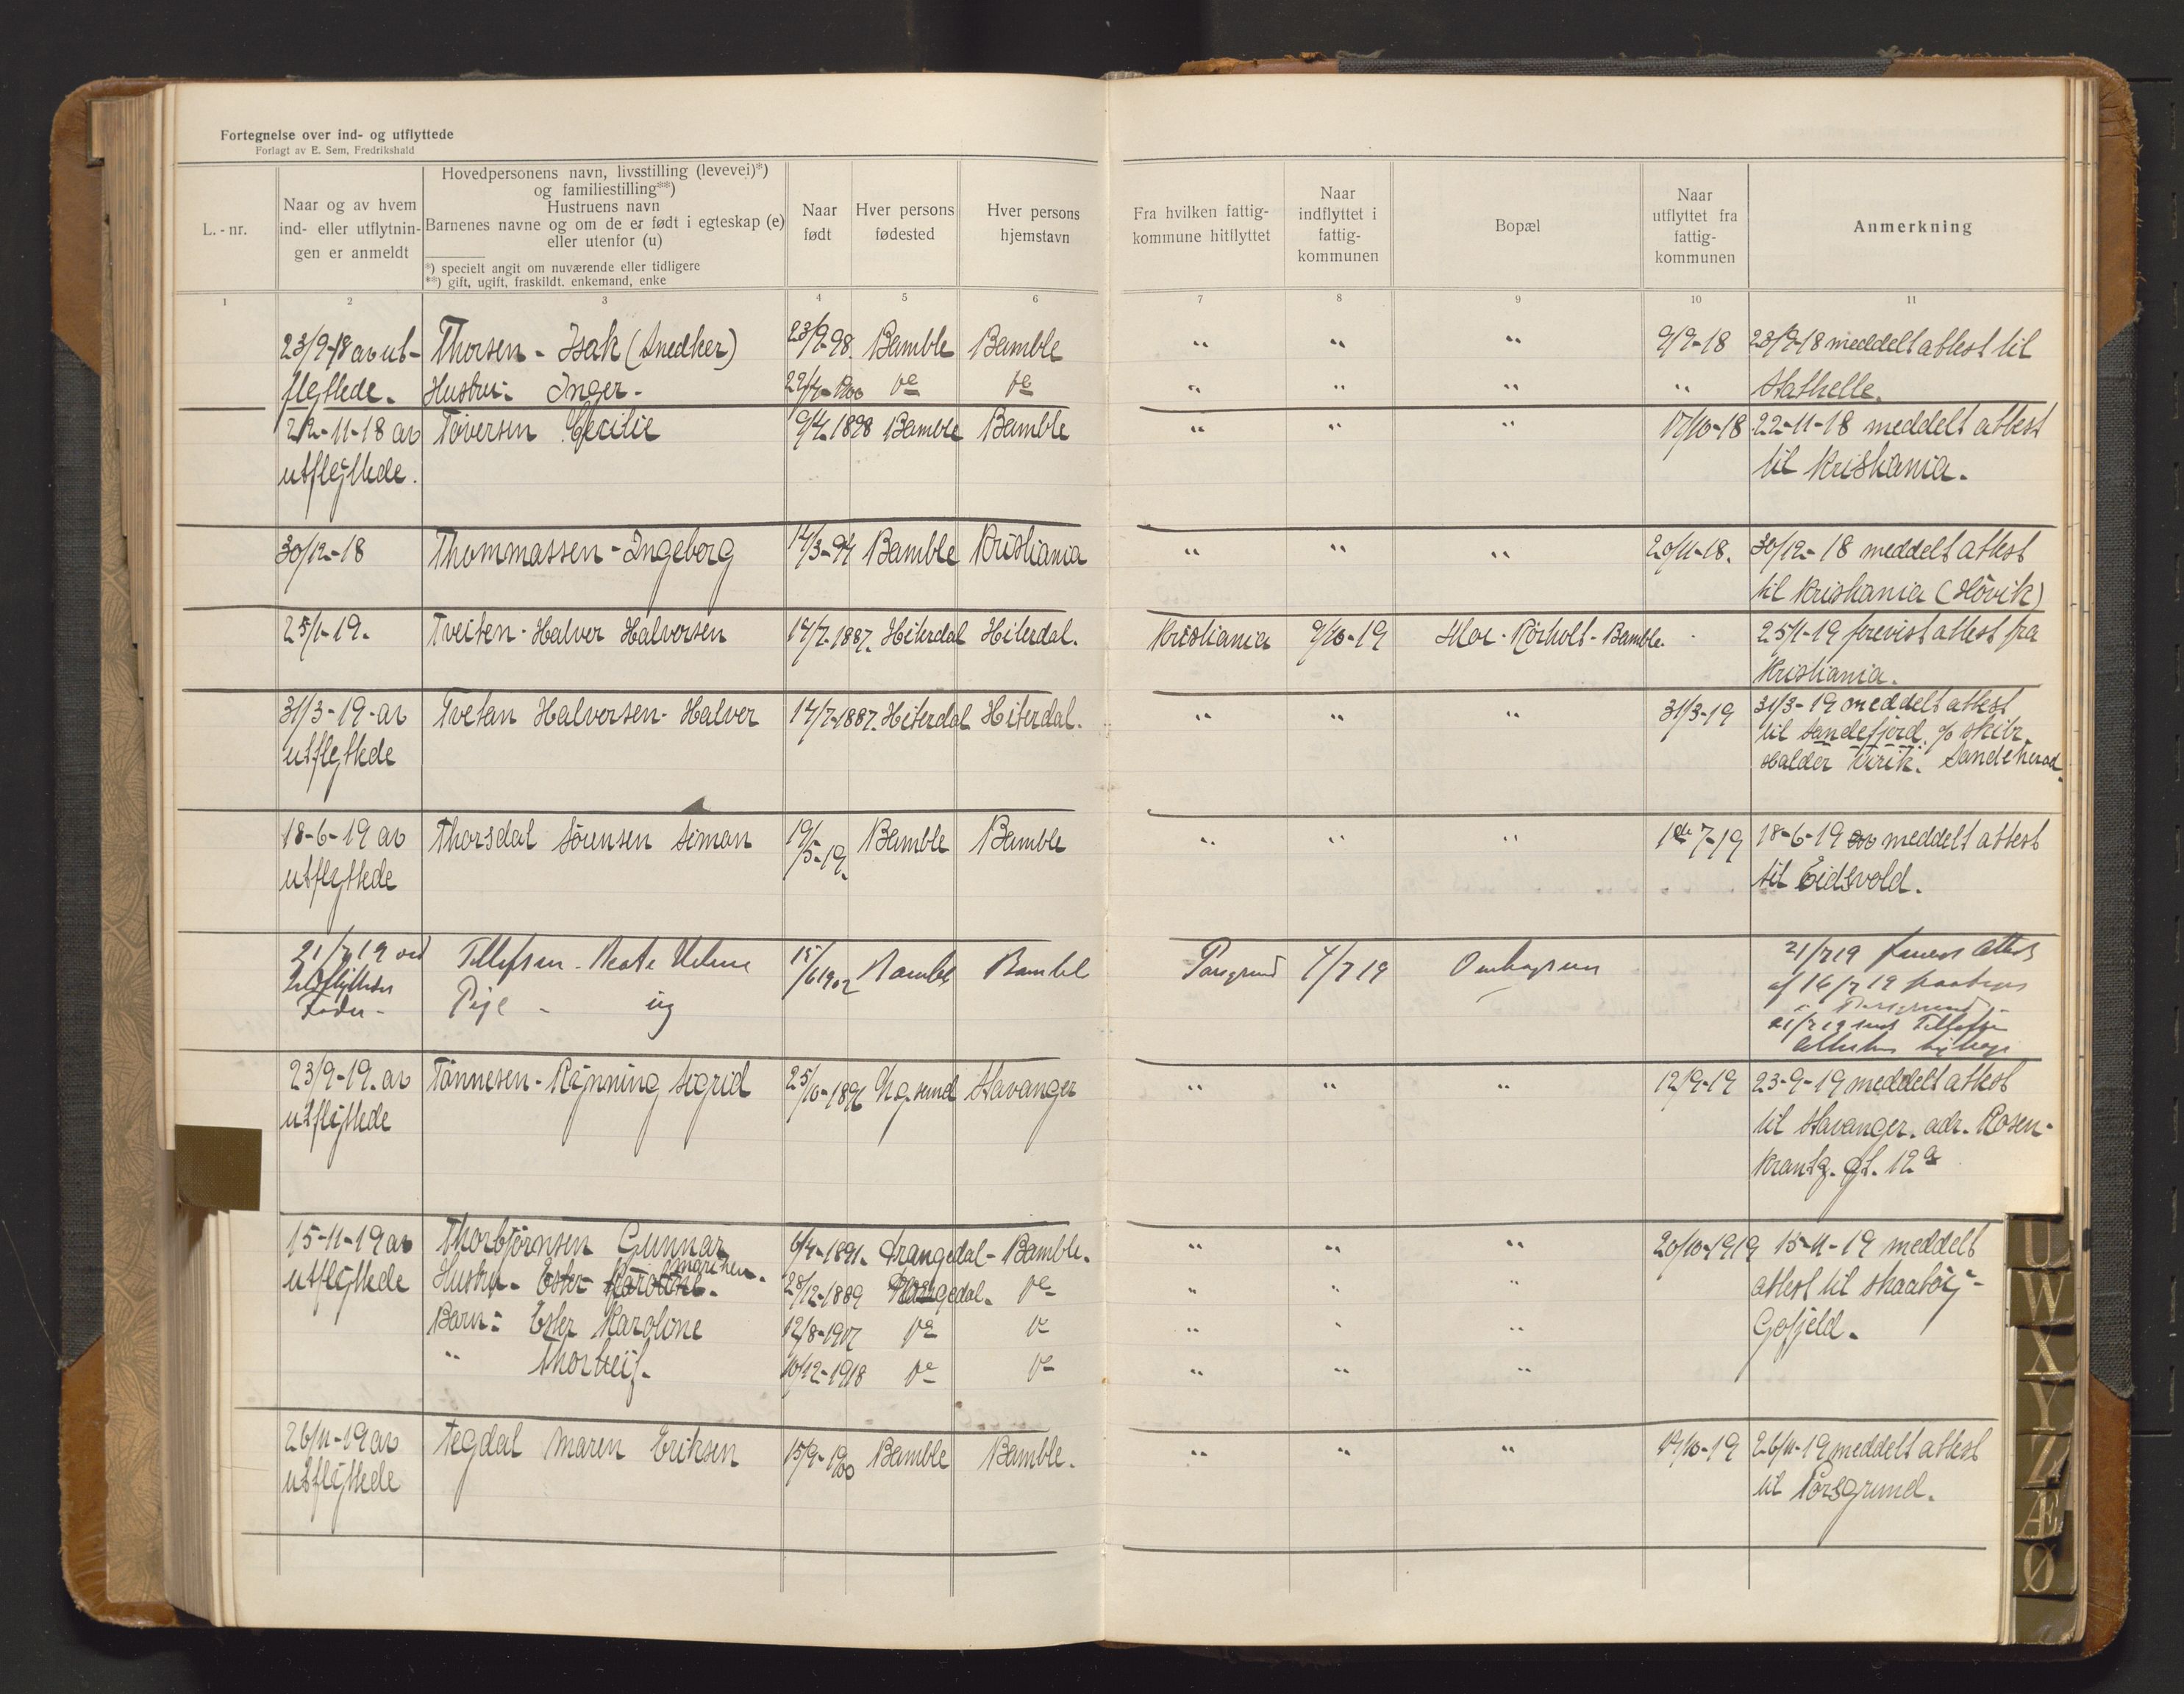 Fortegnelse over ind- og utflyttede
Forlagt av E. Sem, Fredrikshald
L.-nr.
Naar og av hvem
ind- eller utflytnin-
gen er anmeldt
Hovedpersonens navn, livsstilling (levevei)*)
og familiestilling**)
Hustruens navn
Barnenes navne og om de er født i egteskap (e)
eller utenfor (u)
*) specielt angit om nuværende eller tidligere
**) gift, ugift, fraskildt. enkemand, enke
Naar
født
Hver persons
fødested
Hver persons
hjemstavn
Fra hvilken fattig-
kommune hitflyttet
Naar
indflyttet i
fattig-
kommunen
Bopæl
Naar
utflyttet fra
fattig-
kommunen
Anmerkning
1 2 3 4 5 6 7 8 9 10 11
23/9-18 av ut- Thorsen - Isak (Snedker) 23/9-98. Bamble Bamble " " " 9/9-18 23/9-18 meddelt attest til
flyttede. Hustru: Inger - do do " " " " Stathelle.
22-11-18 av Tøversen Cecilie 9/4-1898 Bamble Bamble " " " 17/10-18 22-11-18 meddelt attest
utflyttede. til Kristiania.
30/12-18 Thommassen - Ingeborg 14/3-94 Bamble Kristiania " " " 20/11-18. 30/12-18 meddelt attest
til Kristiania (Høvik)
25/1-19. Tveiten - Halvor Halvorsen 14/7-1887. Hiterdal Hiterdal. Kristiania 9/10-19 Rørholt - Bamble. 25/1-19 forevist attest fra
Kristiania.
31/3-19 - av Tvetan Halvorsen - Halvor 14/7-1887. Hiterdal Hiterdal. " " " 31/3-19 31/3-19 meddelt attest
utflyttede til Sandefjord. % skibr.
Haldor Virik. Sandeherad.
18-6-19 av Thorsdal Sørensen Simon 19/5-19. Bamble Bamble " " " 1de 7-19 18-6-19 meddelt attest
utflyttede til Eidsvold.
21/7 19 ved Tellefsen - Beate Helene 15/6 1902 Bamble Bamble Porsgrund 4/7 19 21/7 19
Fader - Pige - ug af 16/7 19
Porsgrund
21/7 19 Tellefsen
23/9-19. av Tønnesen - Rynning Sigrid 25/10-1896 Stavanger " " " 12/9-19 23-9-19 meddelt attest
utflyttede til Stavanger. adr. Rosen-
krantz. gt. 12a
15-11-19 av Thorbjørnsen Gunnar 6/4-1891. Drangedal - Bamble. " " " 20/10-1919 15-11-19 meddelt
utflyttede Hustru - Ester Karoline Marthea. 28/12-1889 do " " " attest til Skaatøy -
Barn: Ester Karoline 12/8-1917 do do " " " Gofjeld.
" Thorleif. 10/12-1918 do do " " "
26/11-19 av Tegdal Maren Eriksen 15/9-1900 Bamble Bamble. " " " 14/10-19 26/11-19 meddelt attest
utflyttede til Porsgrund.
U
W
X
Y
Z
Æ
Ø